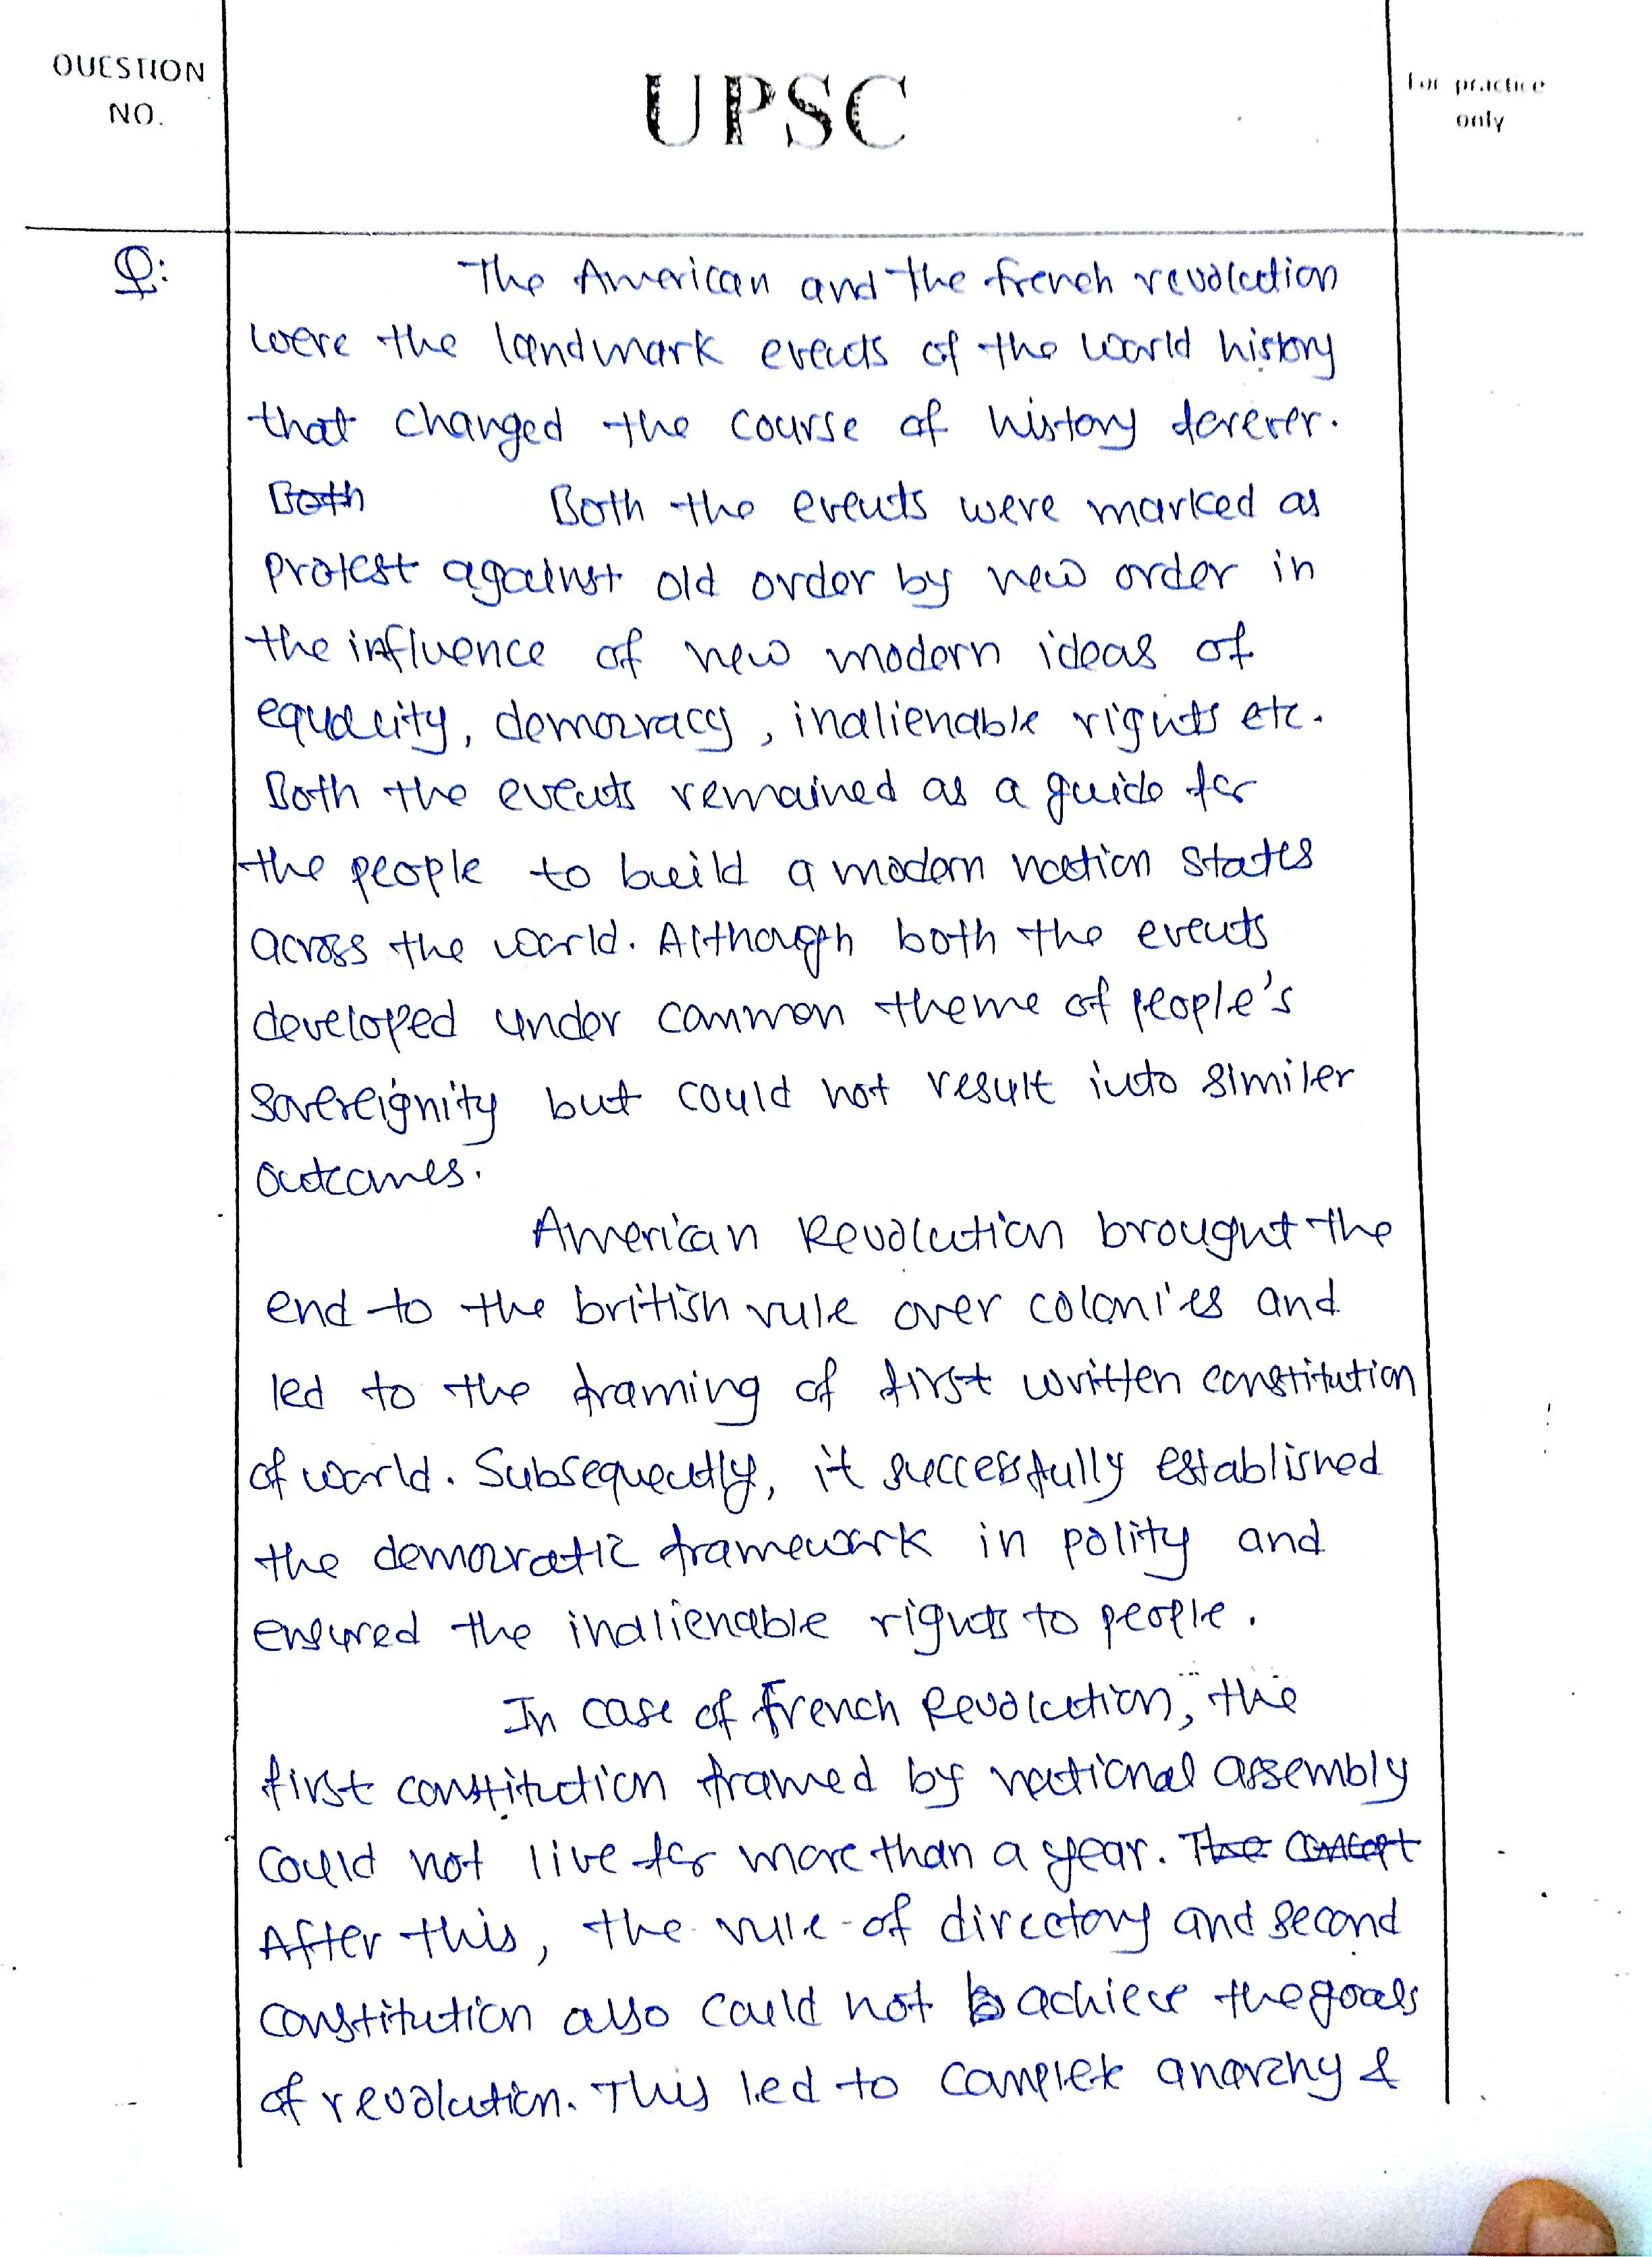 QUESTION
NO.
UPSC
For practice
only
Q:
The American and the french revolution
were the landmark events of the world history
that changed the course of history forever.
Both Both the events were marked as
protest against old order by new order in
the influence of new modern ideas of
equality, democracy, inalienable rights etc.
Both the events remained as a guide for
the people to build a modern nation states
across the world. Although both the events
developed under common theme of people's
sovereignity but could not result into similer
outcomes.
American Revolution brought the
end to the british rule over colonies and
led to the framing of first written constitution
of world. Subsequently, it successfully established
the democratic framework in polity and
ensured the inalienable rights to people.
In case of French Revolution, the
first constitution framed by national assembly
could not live for more than a year. The concept
After this, the rule of directory and second
constitution also could not achieve the goals
of revolution. This led to complete anarchy &